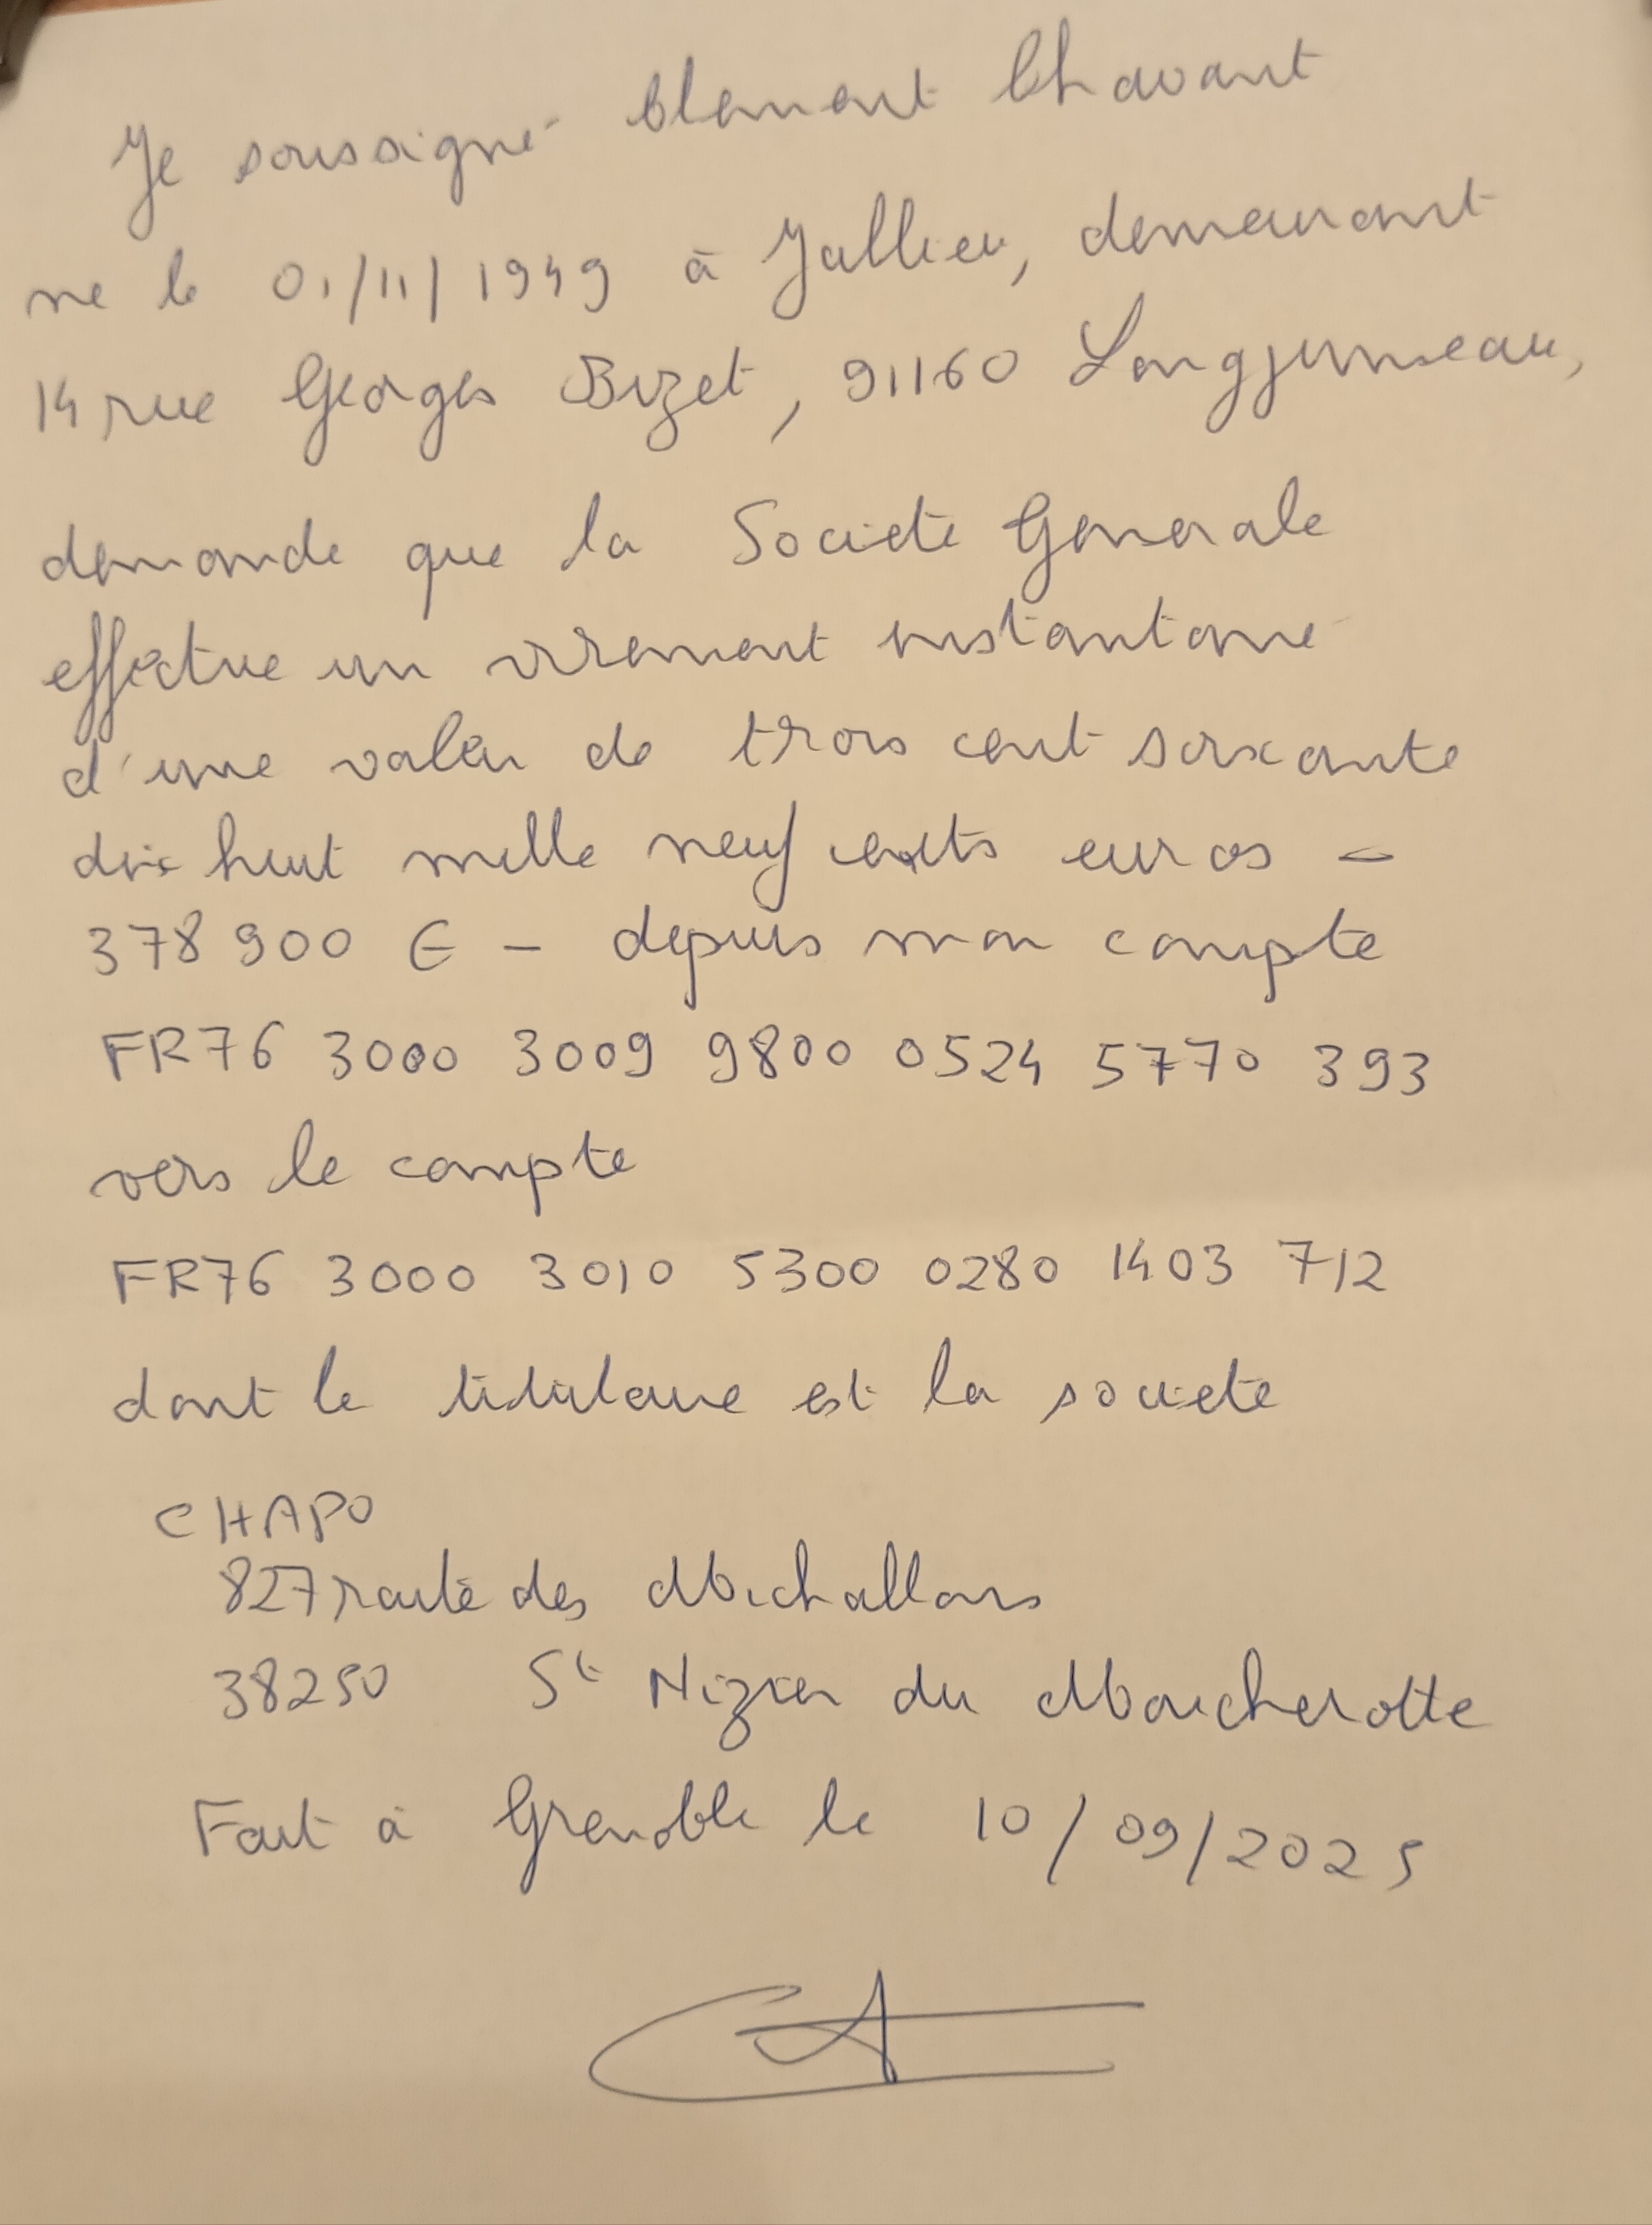 Je soussigné Clement Chavant
né le 01/11/1949 à Jallieu, demeurant
14 rue Georges Bizet, 91160 Longjumeau,
demande que la Société Generale
effectue un virement instantané
d'une valeur de trois cent soixante
dix huit mille neuf cents euros -
378 900 € - depuis mon compte
FR76 3000 3009 9800 0524 5770 393
vers le compte
FR76 3000 3010 5300 0280 1403 712
dont le titulaire est la société
CHAPO
827 route des Michallons
38250 St Nizier du Moucherotte
Fait à Grenoble le 10/09/2025